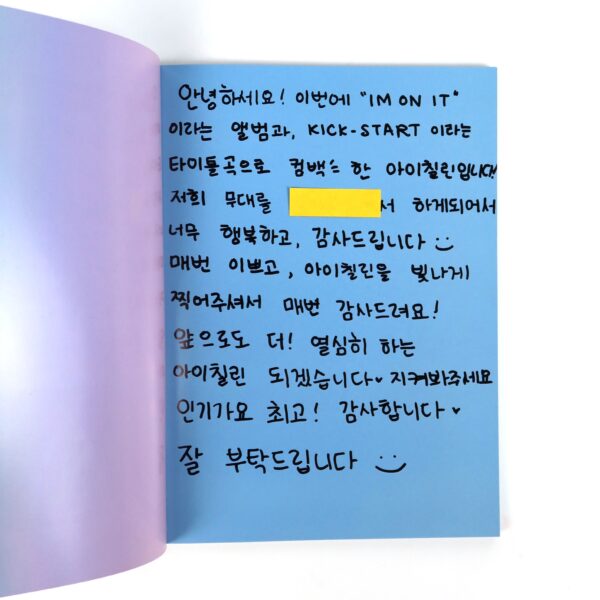 안녕하세요! 이번에 "IM ON IT"
이라는 앨범과, KICK-START 이라는
타이틀곡으로 컴백 한 아이칠린입니다!
저희 무대를 서 하게되어서
너무 행복하고, 감사드립니다 :)
매번 이쁘고, 아이칠린을 빛나게
찍어주셔서 매번 감사드려요!
앞으로도 더! 열심히 하는
아이칠린 되겠습니다♥ 지켜봐주세요
인기가요 최고! 감사합니다♥
잘 부탁드립니다 :)